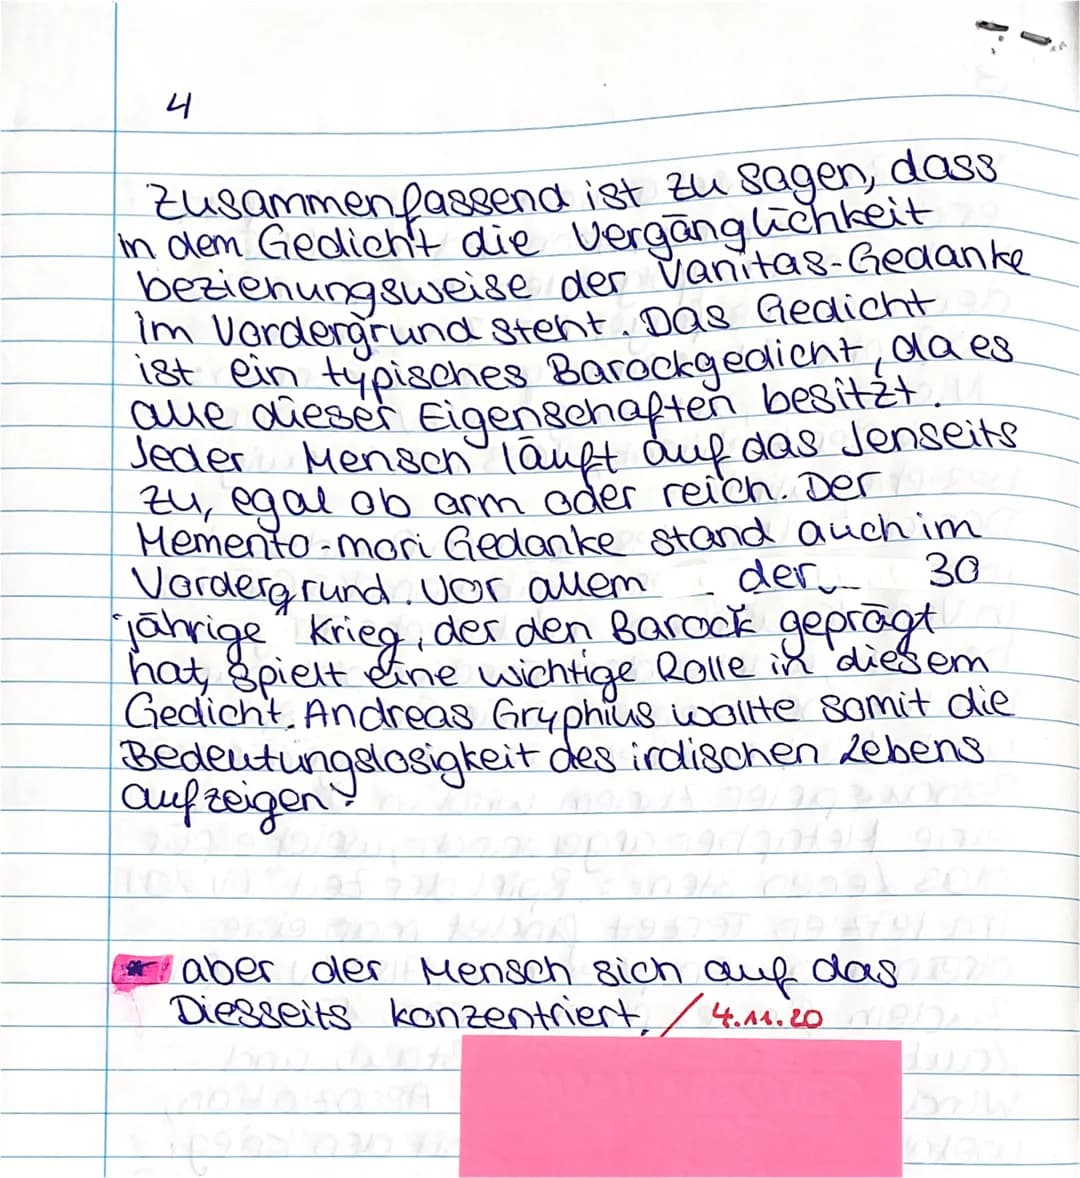 4
Zusammenfassend ist zu sagen, dass
in dem Gedicht die Vergänglichkeit
beziehungsweise der Vanitas-Gedanke
im Vordergrund steht. Das Gedicht
ist ein typisches Barockgedicht, da es
alle dieser Eigenschaften besitzt.
Jeder Mensch läuft auf das Jenseits
zu, egal ob arm oder reich. Der
Memento-mori Gedanke stand auch im
Vordergrund. Vor allem der 30
jährige Krieg, der den Barock geprägt
hat, spielt eine wichtige Rolle in diesem
Gedicht. Andreas Gryphius wollte somit die
Bedeutungslosigkeit des irdischen Lebens
aufzeigen.
* aber der Mensch sich auf das
Diesseits konzentriert. / 4.11.20